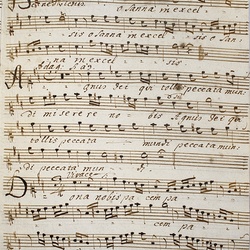 Benedictus osanna in excel
sis osanna in excel sis o San
na in excel sis.
Agnus Dei qui tollis peccata mun
di miserere nobis Agnus Dei qui
tollis peccata mundi peccata mun
di peccata mun
Dona nobis pacem pa
cem pa